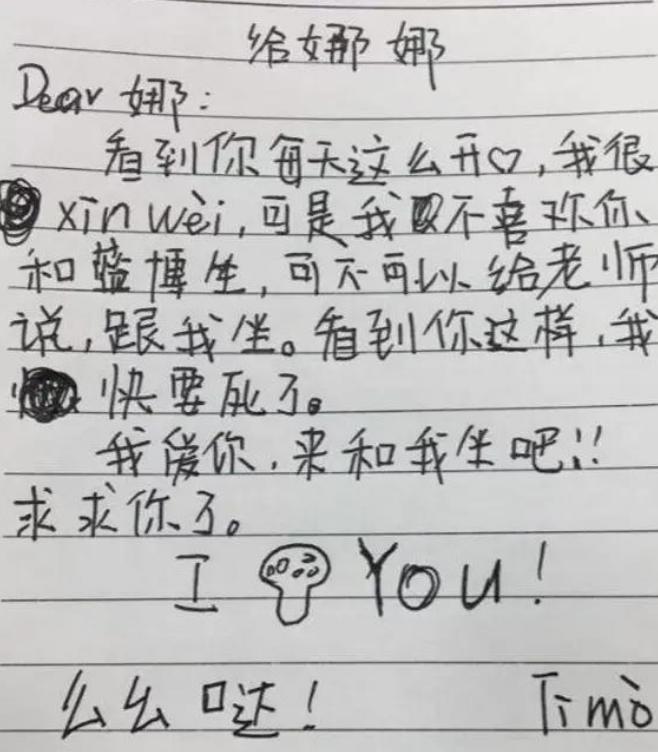 给娜娜
Dear 娜:
看到你每天这么开♡,我很
xīn wèi,可是我不喜欢你
和蓝博生,可不可以给老师
说,跟我坐。看到你这样,我
快要死了。
我爱你,来和我坐吧!!
求求你了。
I You!
么么哒!
Timo